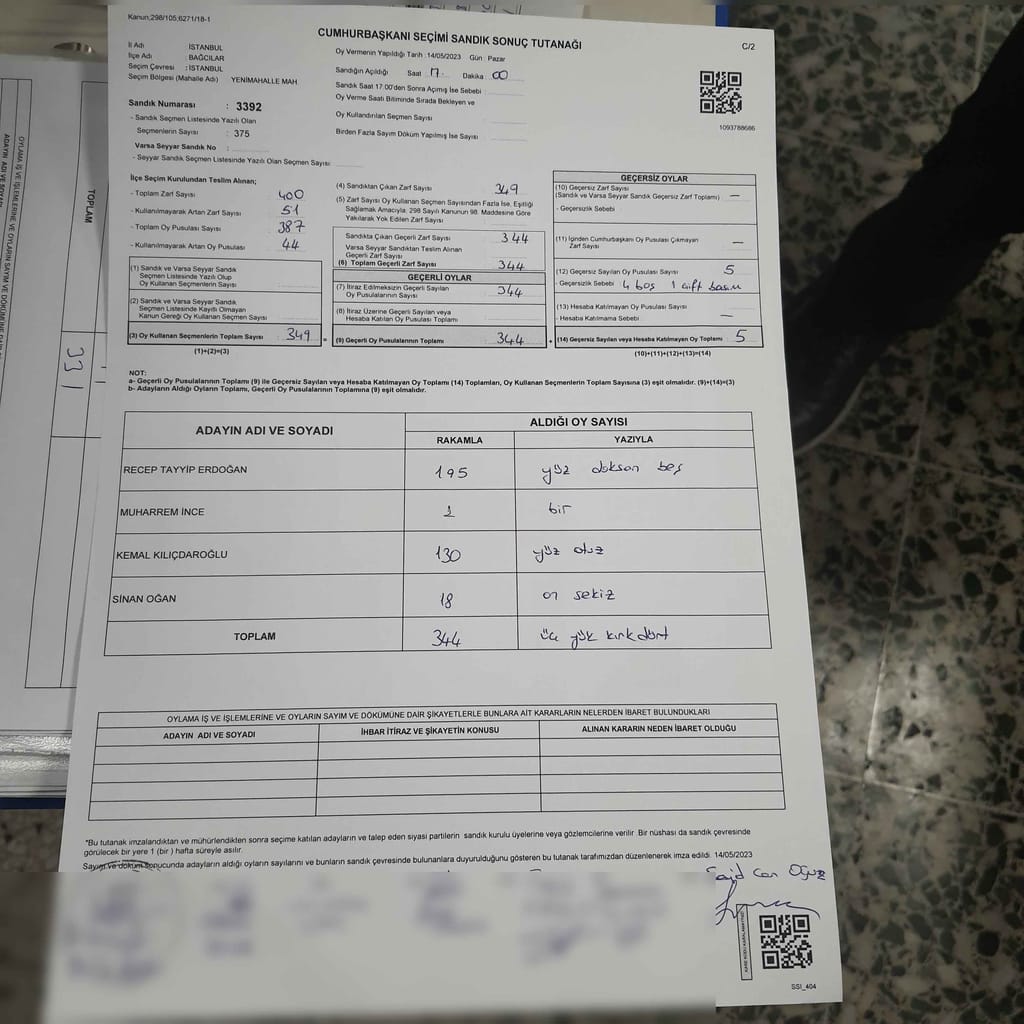 Kanun;298/105;6271/18-1
CUMHURBAŞKANI SEÇİMİ SANDIK SONUÇ TUTANAĞI
C/2
İl Adı : İSTANBUL
İlçe Adı : BAĞCILAR
Seçim Çevresi : İSTANBUL
Seçim Bölgesi (Mahalle Adı) YENİMAHALLE MAH.
Oy Vermenin Yapıldığı Tarih :14/05/2023 Gün : Pazar
Sandığın Açıldığı Saat 17 Dakika : 00
Sandık Saat 17.00'den Sonra Açılmış İse Sebebi
Oy Verme Saati Bitiminde Sırada Bekleyen ve
Oy Kullandırılan Seçmen Sayısı
Birden Fazla Sayım Döküm Yapılmış İse Sayısı
1093788686
Sandık Numarası : 3392
- Sandık Seçmen Listesinde Yazılı Olan
Seçmenlerin Sayısı : 375
Varsa Seyyar Sandık No :
- Seyyar Sandık Seçmen Listesinde Yazılı Olan Seçmen Sayısı
İlçe Seçim Kurulundan Teslim Alınan;
- Toplam Zarf Sayısı : 400
- Kullanılmayarak Artan Zarf Sayısı : 51
- Toplam Oy Pusulası Sayısı : 387
- Kullanılmayarak Artan Oy Pusulası : 44
(1) Sandık ve Varsa Seyyar Sandık
Seçmen Listesinde Yazılı Olup
Oy Kullanan Seçmenlerin Sayısı
(2) Sandık ve Varsa Seyyar Sandık
Seçmen Listesinde Kayıtlı Olmayan
Kanun Gereği Oy Kullanan Seçmen Sayısı
(3) Oy Kullanan Seçmenlerin Toplam Sayısı : 349
(1)+(2)=(3)
(4) Sandıktan Çıkan Zarf Sayısı 349
(5) Zarf Sayısı Oy Kullanan Seçmen Sayısından Fazla İse, Eşitliği
Sağlamak Amacıyla; 298 Sayılı Kanunun 98. Maddesine Göre
Yakılarak Yok Edilen Zarf Sayısı
Sandıkta Çıkan Geçerli Zarf Sayısı 344
Varsa Seyyar Sandıktan Teslim Alınan
Geçerli Zarf Sayısı
(6) Toplam Geçerli Zarf Sayısı 344
GEÇERLİ OYLAR
(7) İtiraz Edilmeksizin Geçerli Sayılan
Oy Pusulalarının Sayısı 344
(8) İtiraz Üzerine Geçerli Sayılan veya
Hesaba Katılan Oy Pusulası Toplamı
(9) Geçerli Oy Pusulalarının Toplamı 344
GEÇERSİZ OYLAR
(10) Geçersiz Zarf Sayısı
(Sandık ve Varsa Seyyar Sandık Geçersiz Zarf Toplamı) —
- Geçersizlik Sebebi
(11) İçinden Cumhurbaşkanı Oy Pusulası Çıkmayan
Zarf Sayısı —
(12) Geçersiz Sayılan Oy Pusulası Sayısı 5
- Geçersizlik Sebebi : 4 boş 1 çift basım
(13) Hesaba Katılmayan Oy Pusulası Sayısı
- Hesaba Katılmama Sebebi —
(14) Geçersiz Sayılan veya Hesaba Katılmayan Oy Toplamı 5
(10)+(11)+(12)+(13)=(14)
NOT:
a- Geçerli Oy Pusulalarının Toplamı (9) ile Geçersiz Sayılan veya Hesaba Katılmayan Oy Toplamı (14) Toplamları, Oy Kullanan Seçmenlerin Toplam Sayısına (3) eşit olmalıdır. (9)+(14)=(3)
b- Adayların Aldığı Oyların Toplamı, Geçerli Oy Pusulalarının Toplamına (9) eşit olmalıdır.
ADAYIN ADI VE SOYADI
ALDIĞI OY SAYISI
RAKAMLA YAZIYLA
RECEP TAYYİP ERDOĞAN 195 yüz doksan beş
MUHARREM İNCE 1 bir
KEMAL KILIÇDAROĞLU 130 yüz otuz
SİNAN OĞAN 18 on sekiz
TOPLAM 344 üç yük kırkdört
OYLAMA İŞ VE İŞLEMLERİNE VE OYLARIN SAYIM VE DÖKÜMÜNE DAİR ŞİKAYETLERLE BUNLARA AİT KARARLARIN NELERDEN İBARET BULUNDUKLARI
ADAYIN ADI VE SOYADI İHBAR İTİRAZ VE ŞİKAYETİN KONUSU ALINAN KARARIN NEDEN İBARET OLDUĞU
*Bu tutanak imzalandıktan ve mühürlendikten sonra seçime katılan adayların ve talep eden siyasi partilerin sandık kurulu üyelerine veya gözlemcilerine verilir. Bir nüshası da sandık çevresinde
görülecek bir yere 1 (bir) hafta süreyle asılır.
Sayım ve döküm sonucunda adayların aldığı oyların sayılarını ve bunların sandık çevresinde bulunanlara duyurulduğunu gösteren bu tutanak tarafımızdan düzenlenerek imza edildi. 14/05/2023
Said Can Oğuz
SSI_404
TOPLAM
331